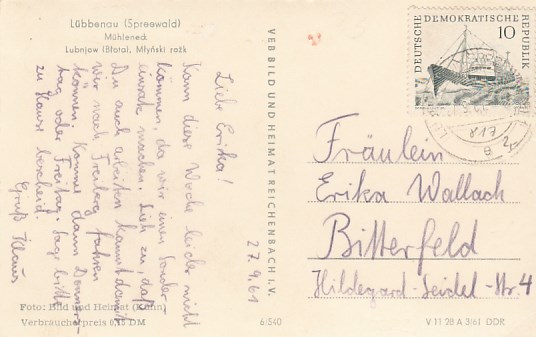 Lübbenau (Spreewald)
Mühleneck
Lubnjow (Błota), Młyński rožk
Liebe Erika!
Kann diese Woche leider nicht
kommen, da wir einen Sonder-
einsatz machen. Sieh zu, daß
Du auch arbeiten kannst damit
wir nach Freiberg fahren
können. Komme dann Donners-
tag oder Freitag. Sage bitte
zu Hause bescheid.
Gruß Klaus
Foto: Bild und Heimat (Kühn)
Verbraucherpreis 0,15 DM
VEB BILD UND HEIMAT REICHENBACH I. V.
27.9.61
6/540
DEUTSCHE DEMOKRATISCHE REPUBLIK
10
817
Fräulein
Erika Wallach
Bitterfeld
Hildegard-Seidel-Str 4
V 11 28 A 3/61 DDR